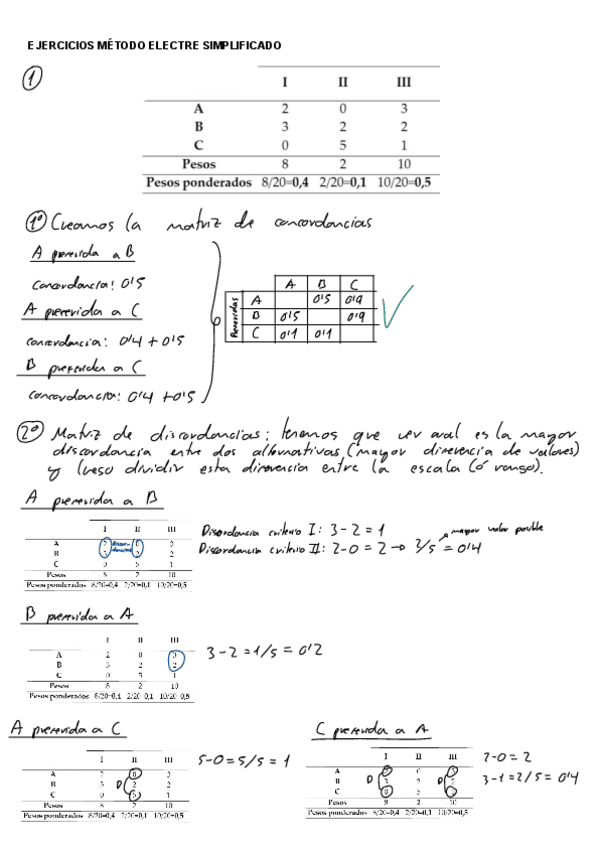 EJERCICIOS MÉTODO ELECTRE SIMPLIFICADO
1
I II III
A 2 0 3
B 3 2 2
C 0 5 1
Pesos 8 2 10
Pesos ponderados 8/20=0,4 2/20=0,1 10/20=0,5
1º Creamos la matriz de concordancias
A preferida a B
concordancia: 0'5
A preferida a C
concordancia: 0'4 + 0'5
B preferida a C
concordancia: 0'4 + 0'5
A B C
Preferidas
A 0'5 0'9
B 0'5 0'9
C 0'1 0'1
2º Matriz de discordancias: tenemos que ver cual es la mayor
discordancia entre dos alternativas (mayor diferencia de valores)
y luego dividir esta diferencia entre la escala (ó rango).
A preferida a B
I II III
A 2 0 3
B 3 2 2
C 0 5 1
Pesos 8 2 10
Pesos ponderados 8/20=0,4 2/20=0,1 10/20=0,5
Discordancia criterio I: 3-2=1
mayor valor posible
Discordancia criterio II: 2-0=2 → 2/5 = 0'4
B preferida a A
I II III
A 2 0 3
B 3 2 2
C 0 5 1
Pesos 8 2 10
Pesos ponderados 8/20=0,4 2/20=0,1 10/20=0,5
3-2=1/5=0'2
A preferida a C
I II III
A 2 0 3
B 3 2 2
C 0 5 1
Pesos 8 2 10
Pesos ponderados 8/20=0,4 2/20=0,1 10/20=0,5
D
5-0=5/5=1
C preferida a A
I II III
A 2 0 3
B 3 2 2
C 0 5 1
Pesos 8 2 10
Pesos ponderados 8/20=0,4 2/20=0,1 10/20=0,5
D D
2-0=2
3-1=2/5=0'4